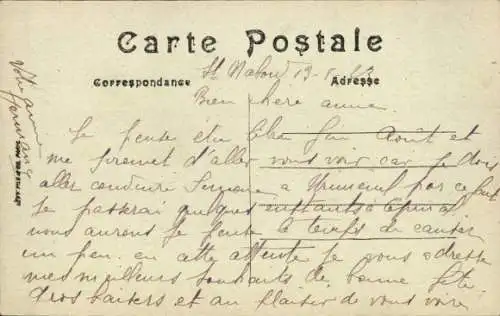 Carte Postale
Correspondance
Adresse
St Nabord 19-8-
Bien chère amie
Je pense être Fin Août et
me promet d'aller vous voir car je dois
aller conduire a par ce fait
Je passerai quelques instants à Epinal
nous aurons je pense le temps de causer
un peu. en cette attente Je vous adresse
mes meilleurs souhaits de bonne fête
Gros baisers et au plaisir de vous voir
Votre amie
Germaine